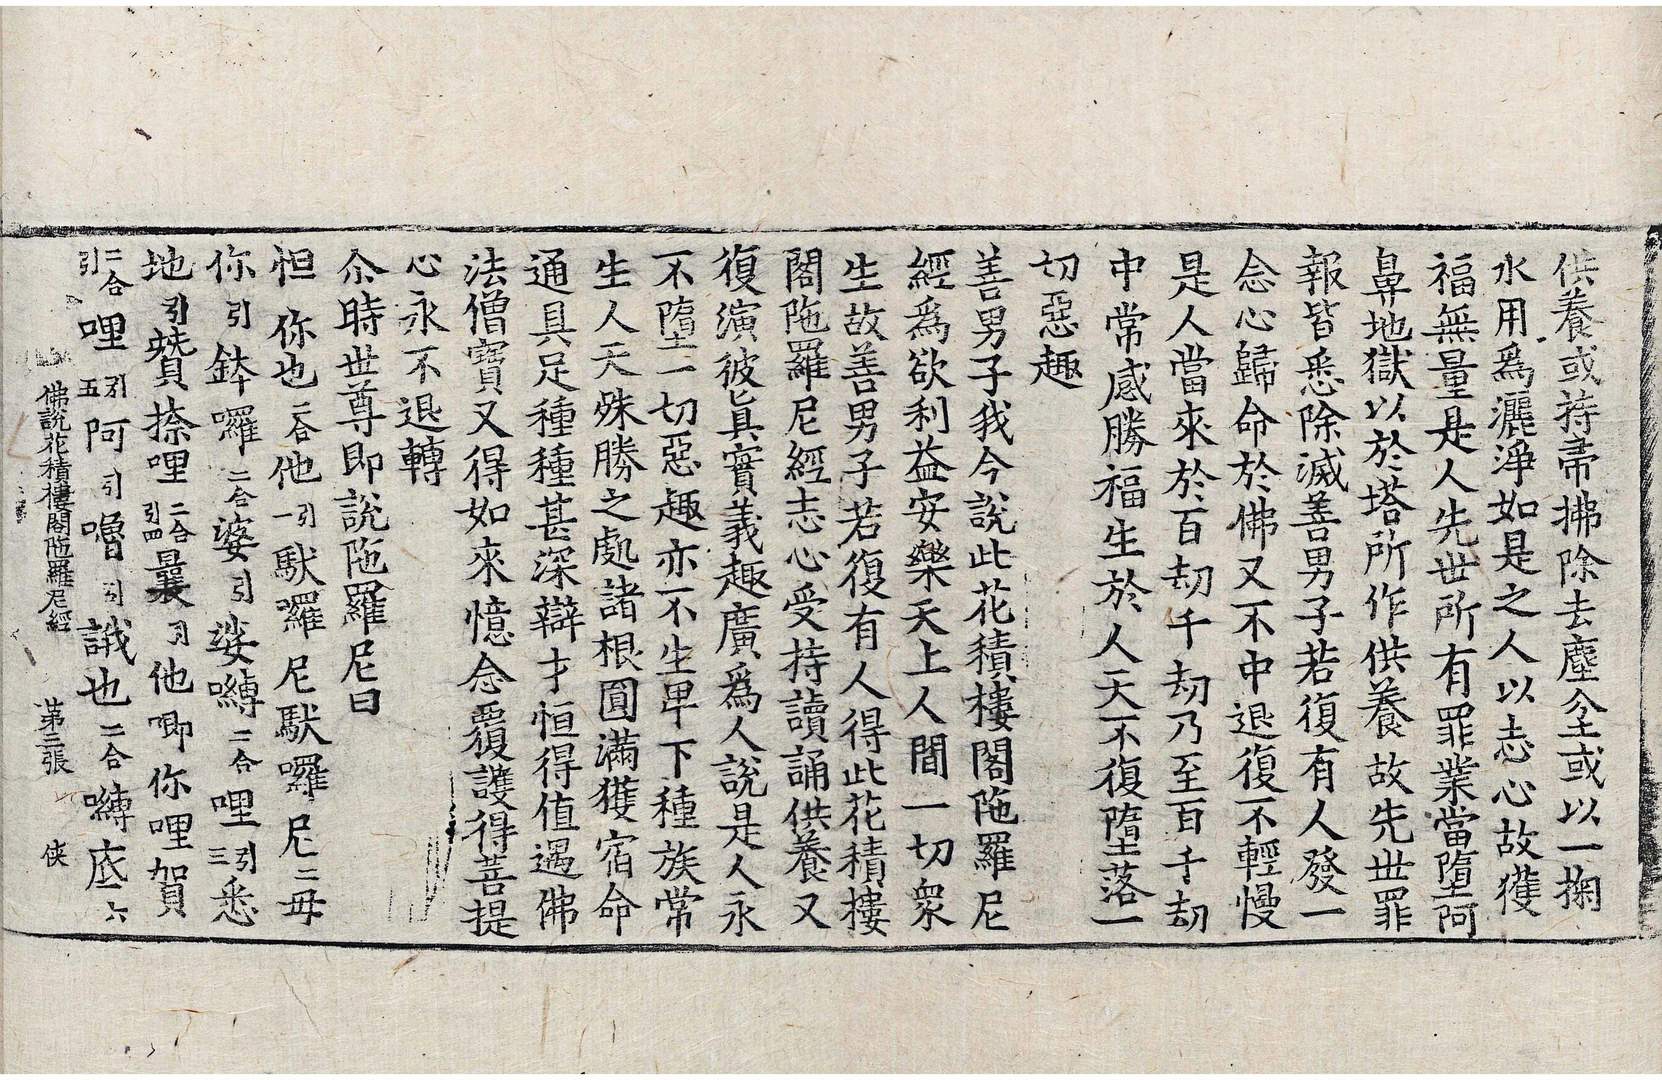 供養或持帚拂除去塵坌或以一掬
水用爲灑淨如是之人以志心故獲
福無量是人先世所有罪業當墮阿
鼻地獄以於塔所作供養故先世罪
報皆悉除滅善男子若復有人發一
念心歸命於佛又不中退復不輕慢
是人當來於百劫千劫乃至百千劫
中常感勝福生於人天不復墮落一
切惡趣
善男子我今說此花積樓閣陁羅尼
經爲欲利益安樂天上人間一切衆
生故善男子若復有人得此花積樓
閣陁羅尼經志心受持讀誦供養又
復演彼眞實義趣廣爲人說是人永
不墮一切惡趣亦不生卑下種族常
生人天殊勝之處諸根圓滿獲宿命
通具足種種甚深辯才恒得值遇佛
法僧寶又得如來憶念覆護得菩提
心永不退轉
尒時世尊即說陁羅尼曰
怛你也二合他引一馱羅尼馱囉尼二毋
你引鉢囉二合婆引娑嚩二合哩引三悉
地引贊捺哩二合引四曩引他唧你哩賀
二合引哩引五阿引嚕引誐也二合嚩底六
佛說花積樓閣陁羅尼經 第三張 俠